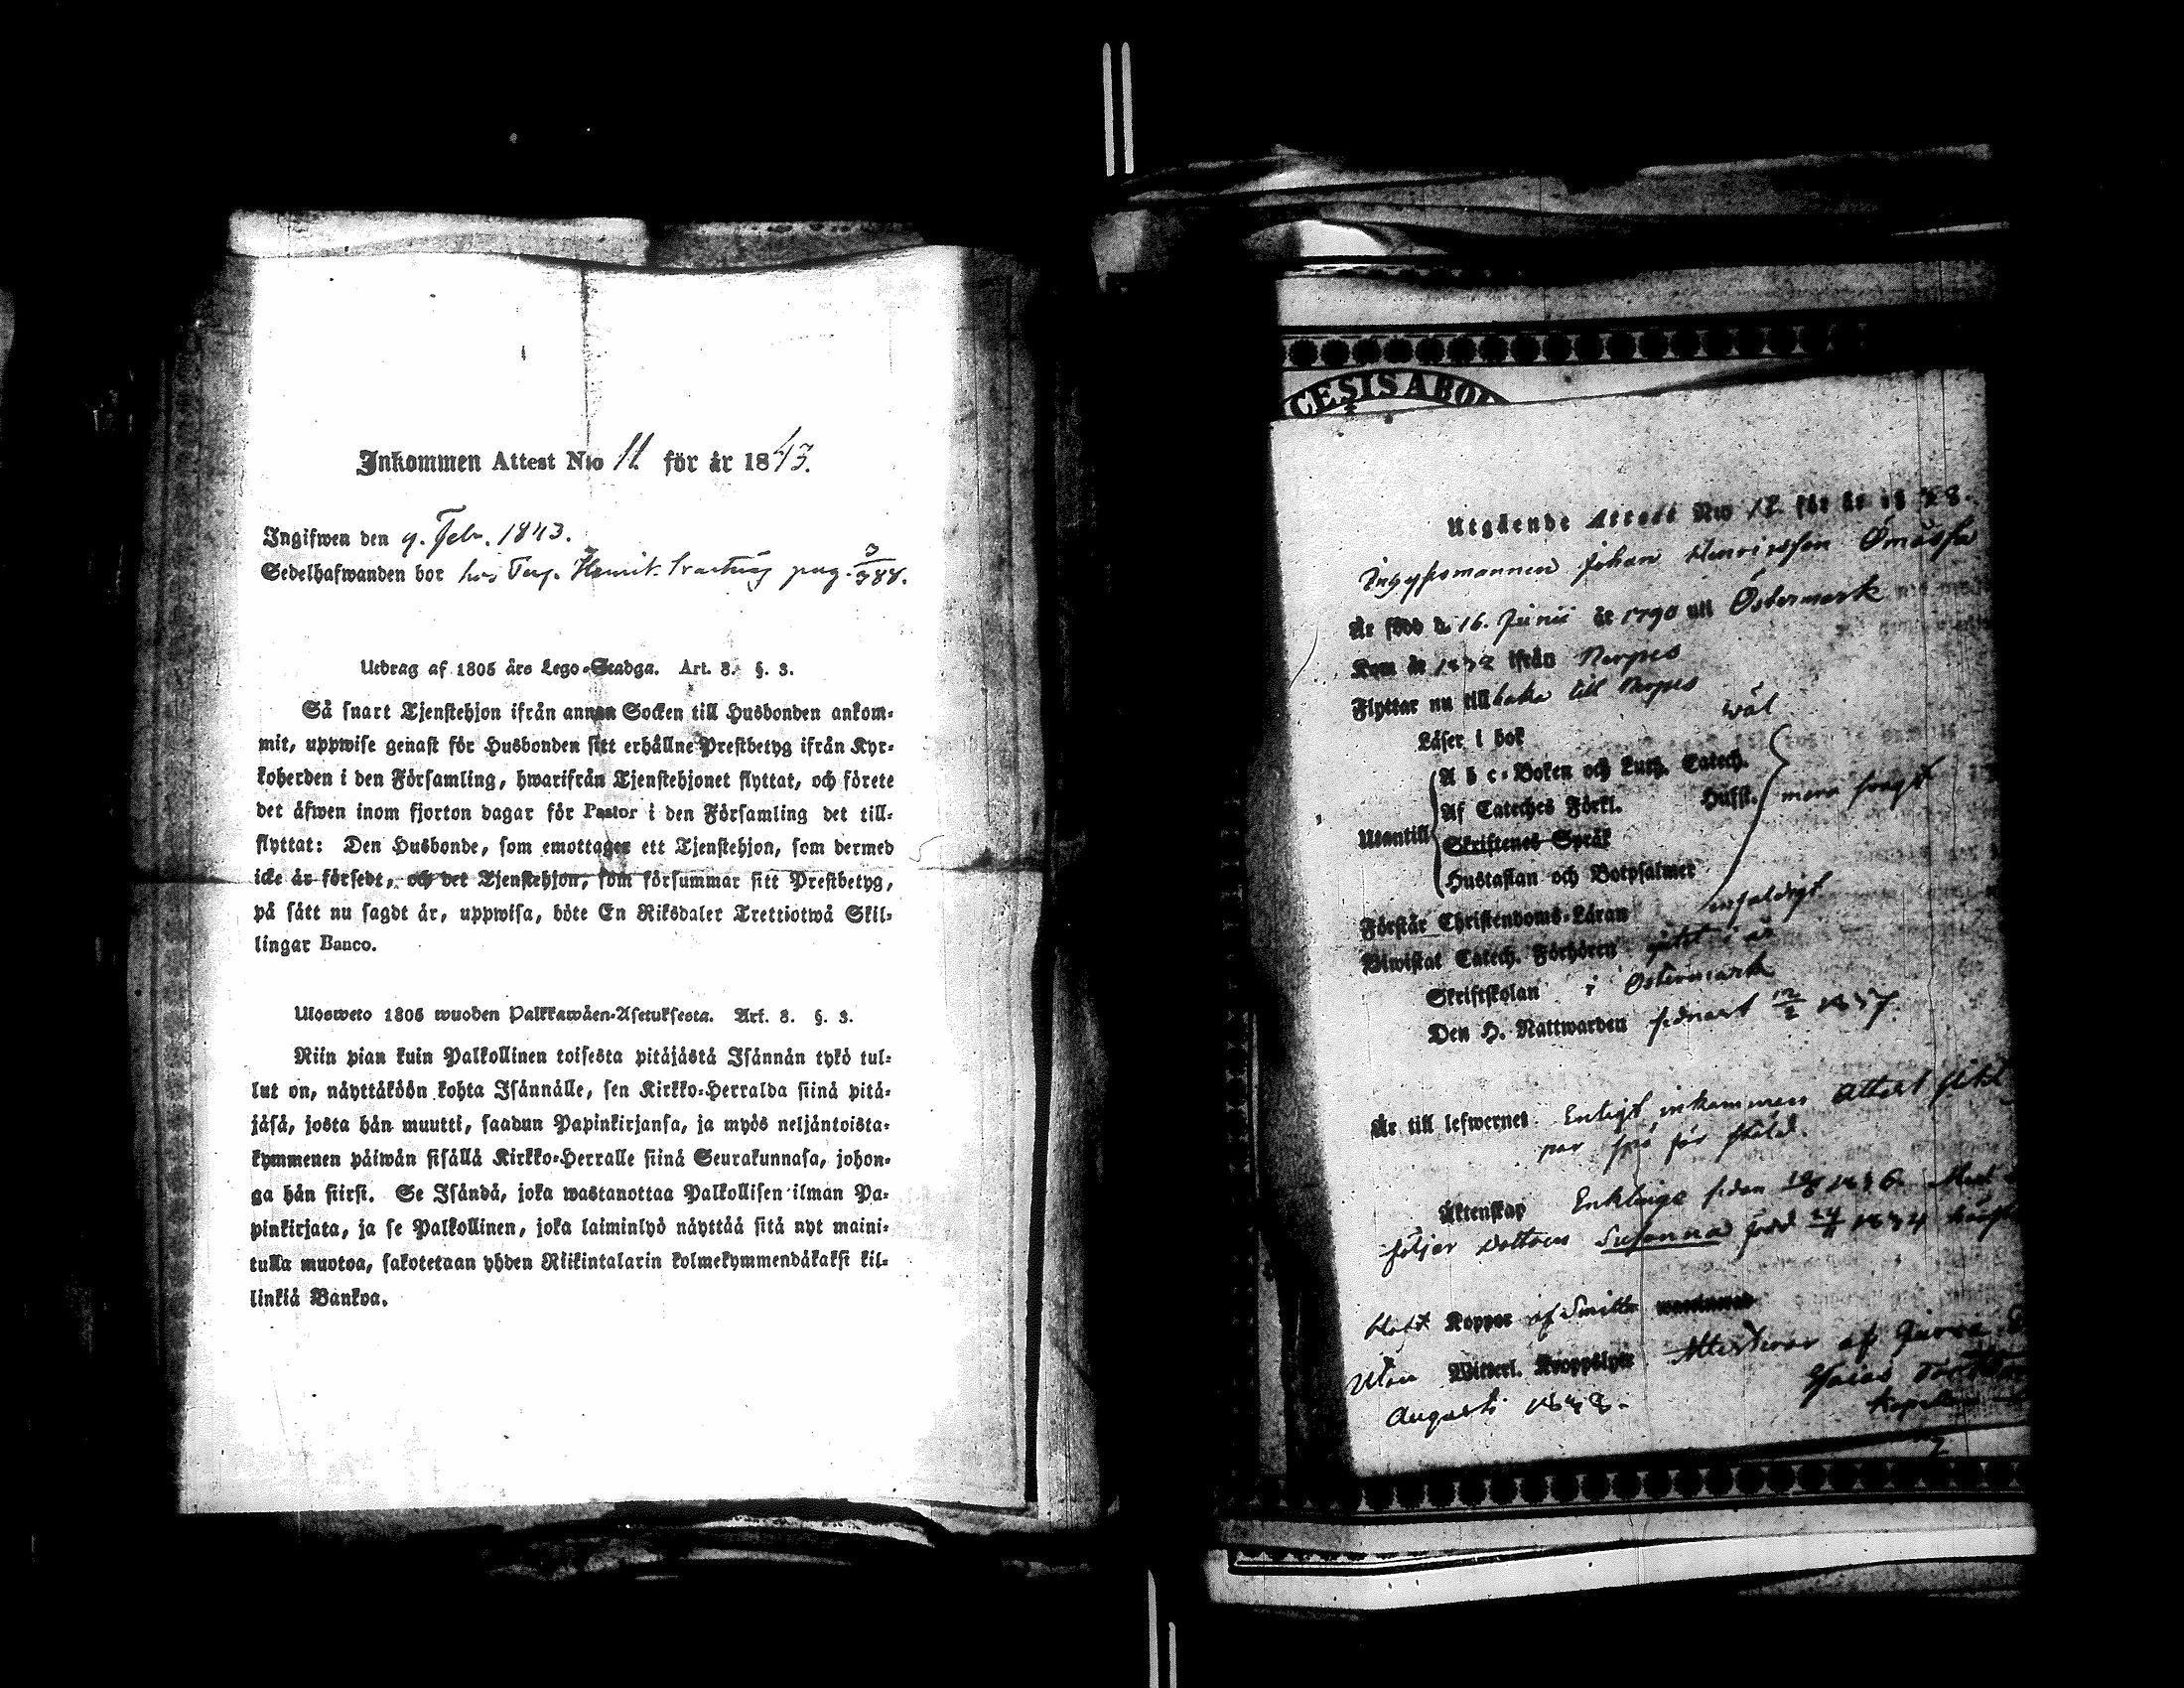 Inkommen Attest No 11 för år 1843.
Ingifwen den 9. Febr. 1843.
Sedelhafwanden bor hos Henrik pag. 3/388.
Utdrag af 1805 års Lego-Stadga. Art. 3. §. 3.
Så snart Tjenstehjon ifrån annan Socken till Husbonden ankom-
mit, uppwise genast för Husbonden sitt erhållne Prestbetyg ifrån Kyr-
koherden i den Församling, hwarifrån Tjenstehjonet flyttat, och förete
det äfwen inom fjorton dagar för Pastor i den Församling det till-
flyttat: Den Husbonde, som emottager ett Tjenstehjon, som dermed
icke är försedt, och det Tjenstehjon, som försummar sitt Prestbetyg,
på sätt nu sagdt är, uppwisa, böte En Riksdaler Trettiotwå Skil-
lingar Banco.
Ulosweto 1805 wuoden Palkkawäen-Asetuksesta. Art. 3. §. 3.
Niin pian kuin Palkollinen toisesta pitäjästä Isännän tykö tul-
lut on, näyttäköön kohta Isännälle, sen Kirkko-Herralda siinä pitä-
jäsä, josta hän muutti, saadun Papinkirjansa, ja myös neljäntoista-
kymmenen päiwän sisällä Kirkko-Herralle siinä Seurakunnasa, johon-
ga hän siirsi. Se Isändä, joka wastanottaa Palkollisen ilman Pa-
pinkirjata, ja se Palkollinen, joka laiminlyö näyttää sitä nyt maini-
tulla muotoa, sakotetaan yhden Riikintalarin kolmekymmendäkaksi kil-
linkiä Bankoa.
CESIS ABO
Utgående Attest No 12 för år 18
Johan Henriksson
Är född d. 16. Junii år 1790 uti Östermark
Kom år ifrån Nerpes
Flyttar nu tillbaka till Nerpes
Läser i bok wäl
A b c-Boken och Luth. Catech.
Af Cateches Förkl. Hufst.
Utantill
Skriftenes Språk
Hustaflan och Botpsalmer
Förstår Christendoms-Läran enfaldigt
Biwistat Catech. Förhören i år
Skriftskolan i Östermark
Den H. Nattwarden sednast
Är till lefwernet Enligt inkommen Attest
för stöld.
Äktenskap Enkling sedan
följer dottren Susanna född
Haft Koppor af Smitta
Utan Widerl. Kroppslyte Attesterar af
Augusti
Esaias